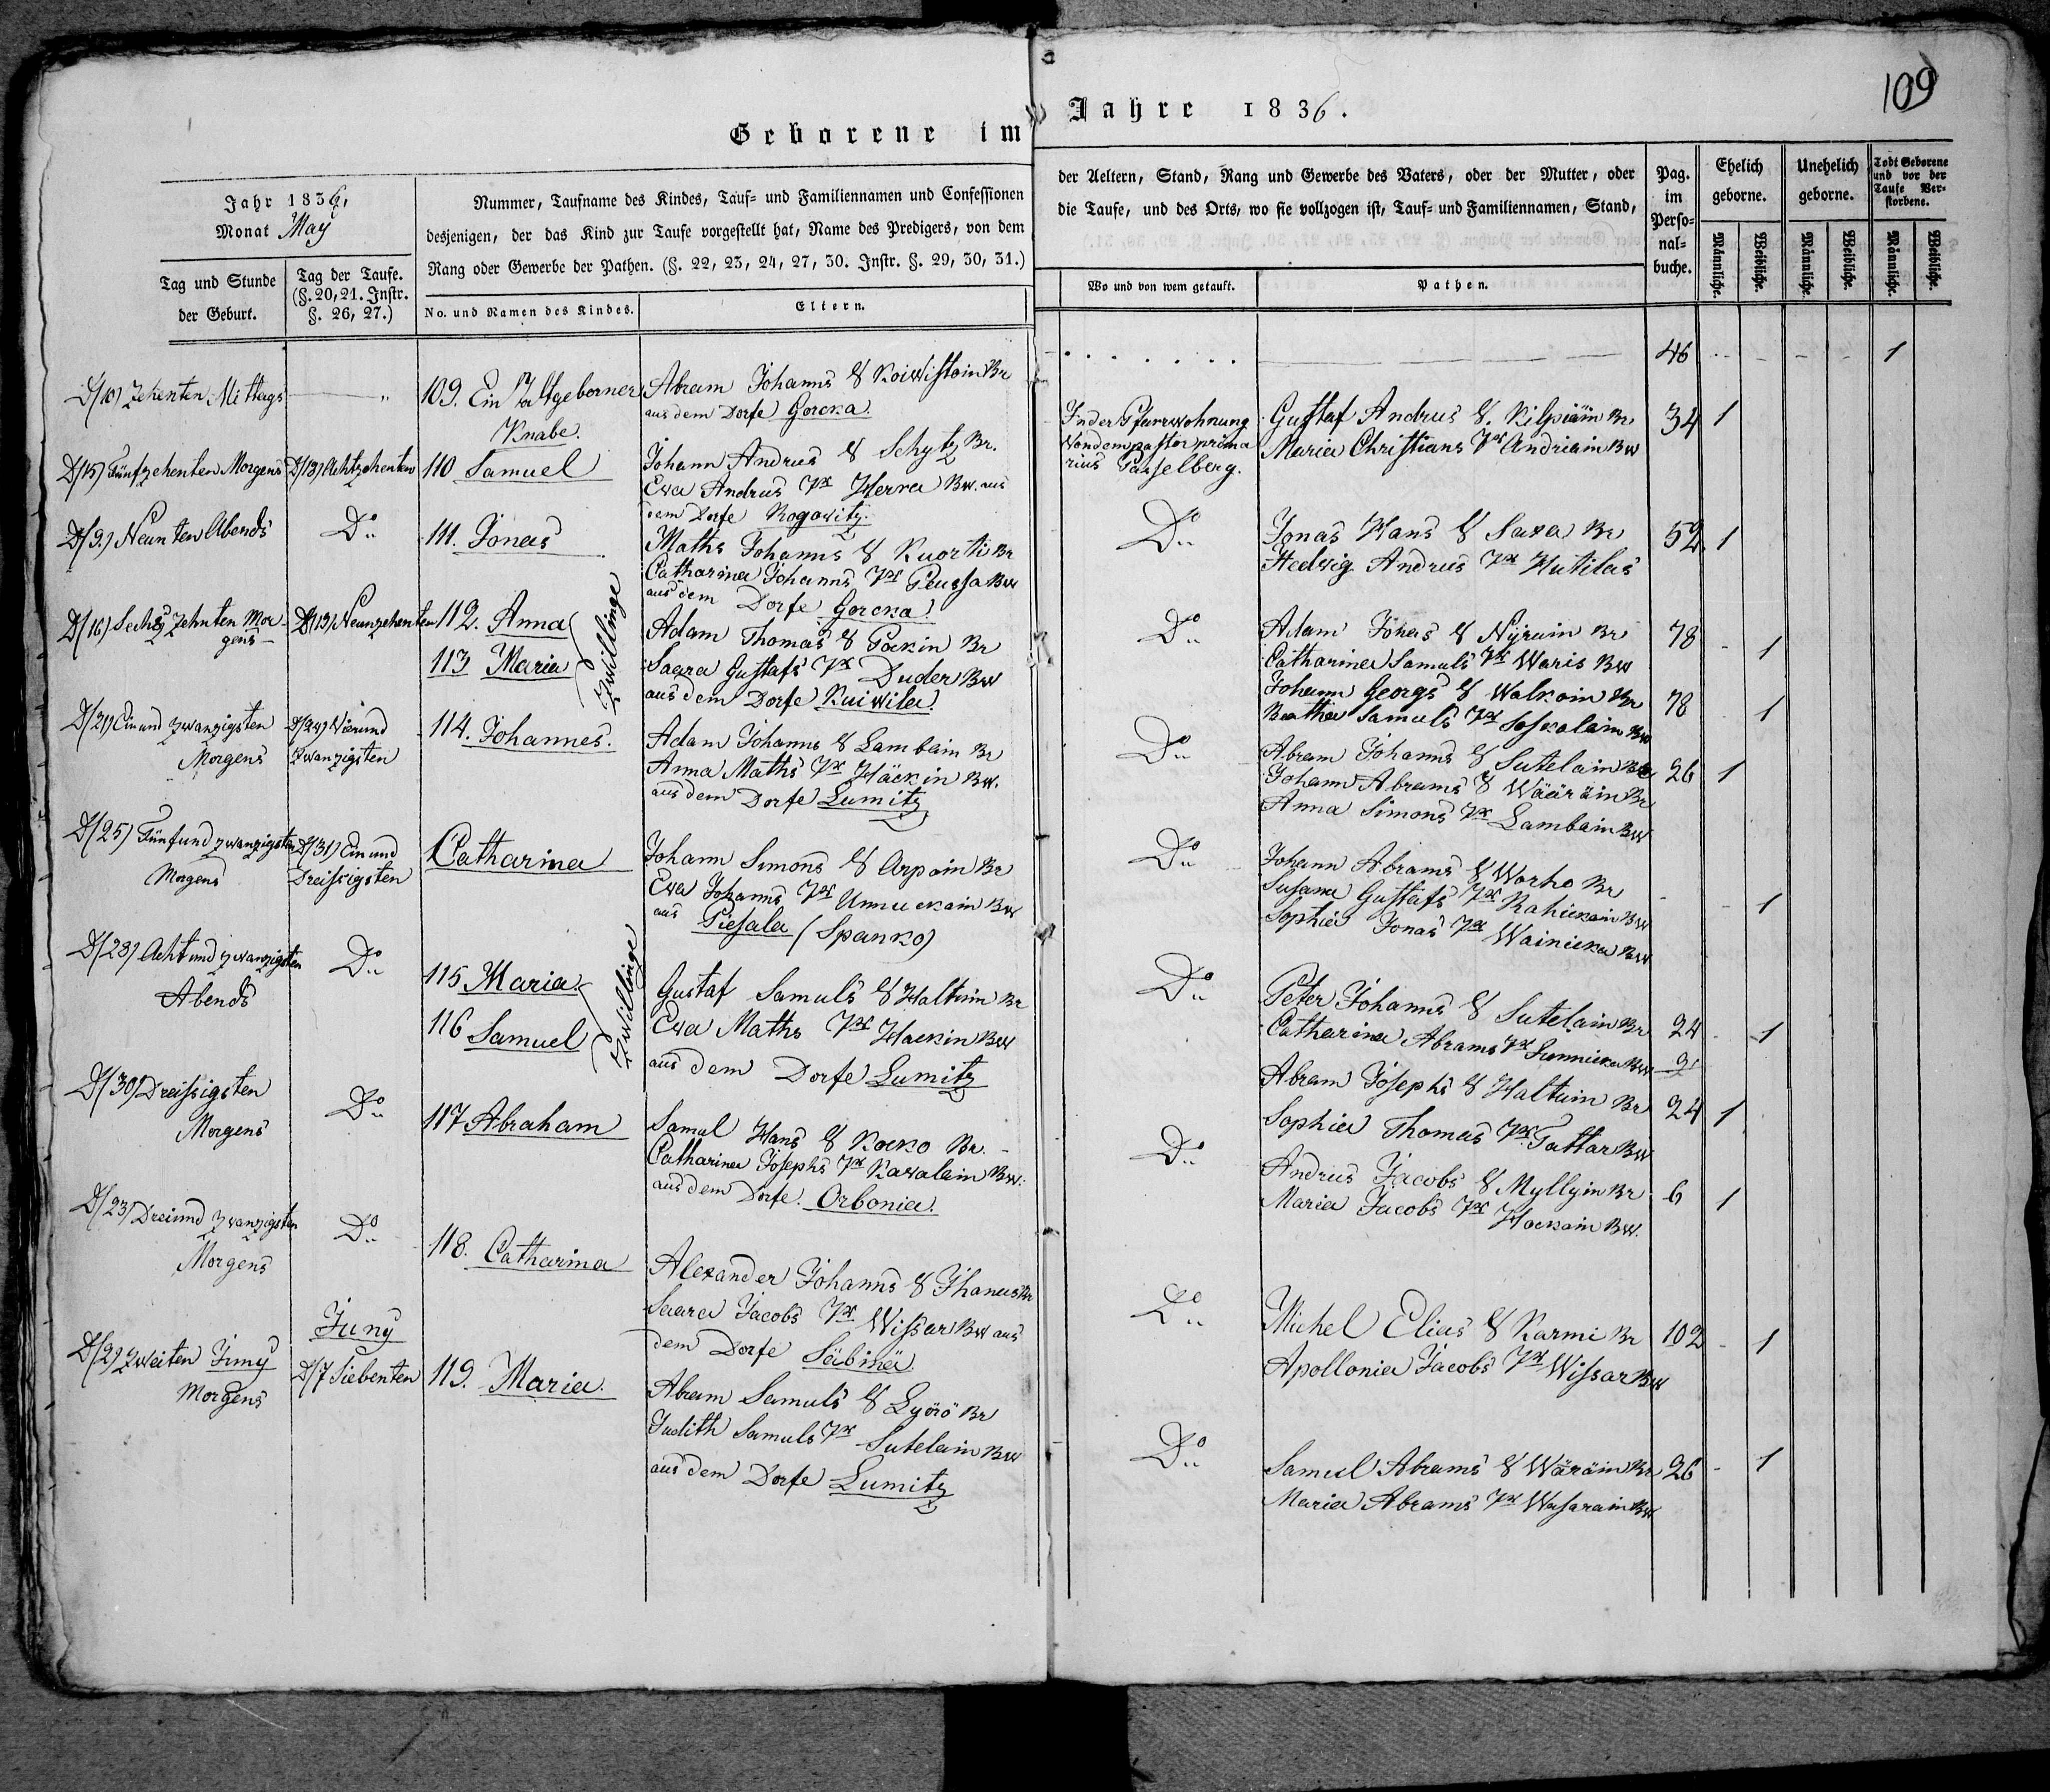 109
Geborene im Jahre 1836.
Jahr 1836,
Monat May
Nummer, Taufname des Kindes, Tauf- und Familiennamen und Confessionen
desjenigen, der das Kind zur Taufe vorgestellt hat, Name des Predigers, von dem
Rang oder Gewerbe der Pathen. (§. 22, 23, 24, 27, 30. Instr. §. 29, 30, 31.)
der Aeltern, Stand, Rang und Gewerbe des Vaters, oder der Mutter, oder
die Taufe, und des Orts, wo sie vollzogen ist, Tauf- und Familiennamen, Stand,
Pag.
im
Perso-
nal-
buche.
Ehelich
geborne.
Unehelich
geborne.
Todt Geborene
und vor der
Taufe Ver-
storbene.
Tag und Stunde
der Geburt.
Tag der Taufe.
(§. 20, 21. Instr.
§. 26, 27.)
No. und Namen des Kindes.
Eltern.
Wo und von wem getauft.
Pathen.
Männliche.
Weibliche.
Männliche.
Weibliche.
Männliche.
Weibliche.
D/10) Zehenten Mittags
109. Ein Todtgeborner
Knabe.
Abram Johanns S Koiwistoin Br
aus dem Dorfe Gorcka.
46 1
D/15) Fünfzehenten Morgens
D/18) Achtzehenten
110 Samuel
Johann Andrus S Schytz Br.
Ewa Andrus Tr Herra Bw. aus
dem Dorfe Rogowitz.
In der Pfarrwohnung
Von dem pastor prima
rius Passelberg.
Gustaf Andrus S. Kilpiäin Br
Maria Christians Tr Andriain Bw
34 1
D/9.) Neunten Abends
Do
111. Jonas
Maths Johanns S Kuorti Br
Catharina Johanns Tr Peussa Bw
aus dem Dorfe Gorcka.
Do
Jonas Hans S Saxa Br
Hedwig Andrus Tr Hutilas
52. 1
D/16) Sechs Zehnten Mor-
gens
D/19) Neunzehenten
112. Anna
113 Maria
Zwillinge
Adam Thomas S Pockin Br
Saara Gustafs Tr Duder Bw
aus dem Dorfe Kuiwila.
Do
Adam Johas S Nyrain Br
Catharina Samuls Tr Waris Bw
78 1
Johann Georgs S Walkoin Br
Beatha Samuls Tr Soskolain Bw
78 1
D/21) Ein und zwanzigsten
Morgens
D/24) Vierund
Zwanzigsten
114. Johannes.
Adam Johanns S Lambain Br
Anna Maths Tr Häckin Bw.
aus dem Dorfe Lumitz
Do
Abram Johanns S Sutelain Br
Johann Abrams S Wääräin Br
Anna Simons Tr Lambain Bw
26 1
D/25) Fünfund zwanzigsten
Morgens
D/31) Ein und
Dreissigsten
Catharina
Johann Simons S Arpoin Br
Ewa Johanns Tr Unnuckain Bw
aus Piesala (Spanko)
Do
Johann Abrams S Worho Br
Susana Gustafs Tr Rahickain Bw
Sophia Jonas Tr Wainicka Bw
1
D/28) Acht und zwanzigsten
Abends
Do
115 Maria
116 Samuel
Zwillinge
Gustaf Samuls S Haltuin Br
Ewa Maths Tr Hackin Bw
aus dem Dorfe Lumitz
Do
Peter Johanns S Sutelain Br
Catharina Abrams Tr Sunnicka Bw
24 1
Abram Josephs S Haltuin Br
Sophia Thomas Tr Tattar Bw
24 1
D/30) Dreissigsten
Morgens
Do
117 Abraham
Samul Hans S Kocko Br.
Catharina Josephs Tr Kawalain Bw.
aus dem Dorfe. Orbonia.
Do
Andrus Jacobs S Myllyin Br
Maria Jacobs Tr Hockain Bw.
6 1
D/23) Dreiund zwanzigsten
Morgens
Do
118. Catharina
Alexander Johanns S Ihanus Br
Saara Jacobs Tr Wissar Bw aus
dem Dorfe Säbinä
Do
Michel Elias S Karmi Br
Apollonia Jacobs Tr Wissar Bw
102 1
Juny
D/2) Zweiten Juny
Morgens
D/7 Siebenten
119. Maria.
Abram Samuls S Lyörö Br
Judith Samuls Tr Sutelain Bw
aus dem Dorfe Lumitz
Do
Samuel Abrams S Wäräin Br
Maria Abrams Tr Wasarain Bw
26 1